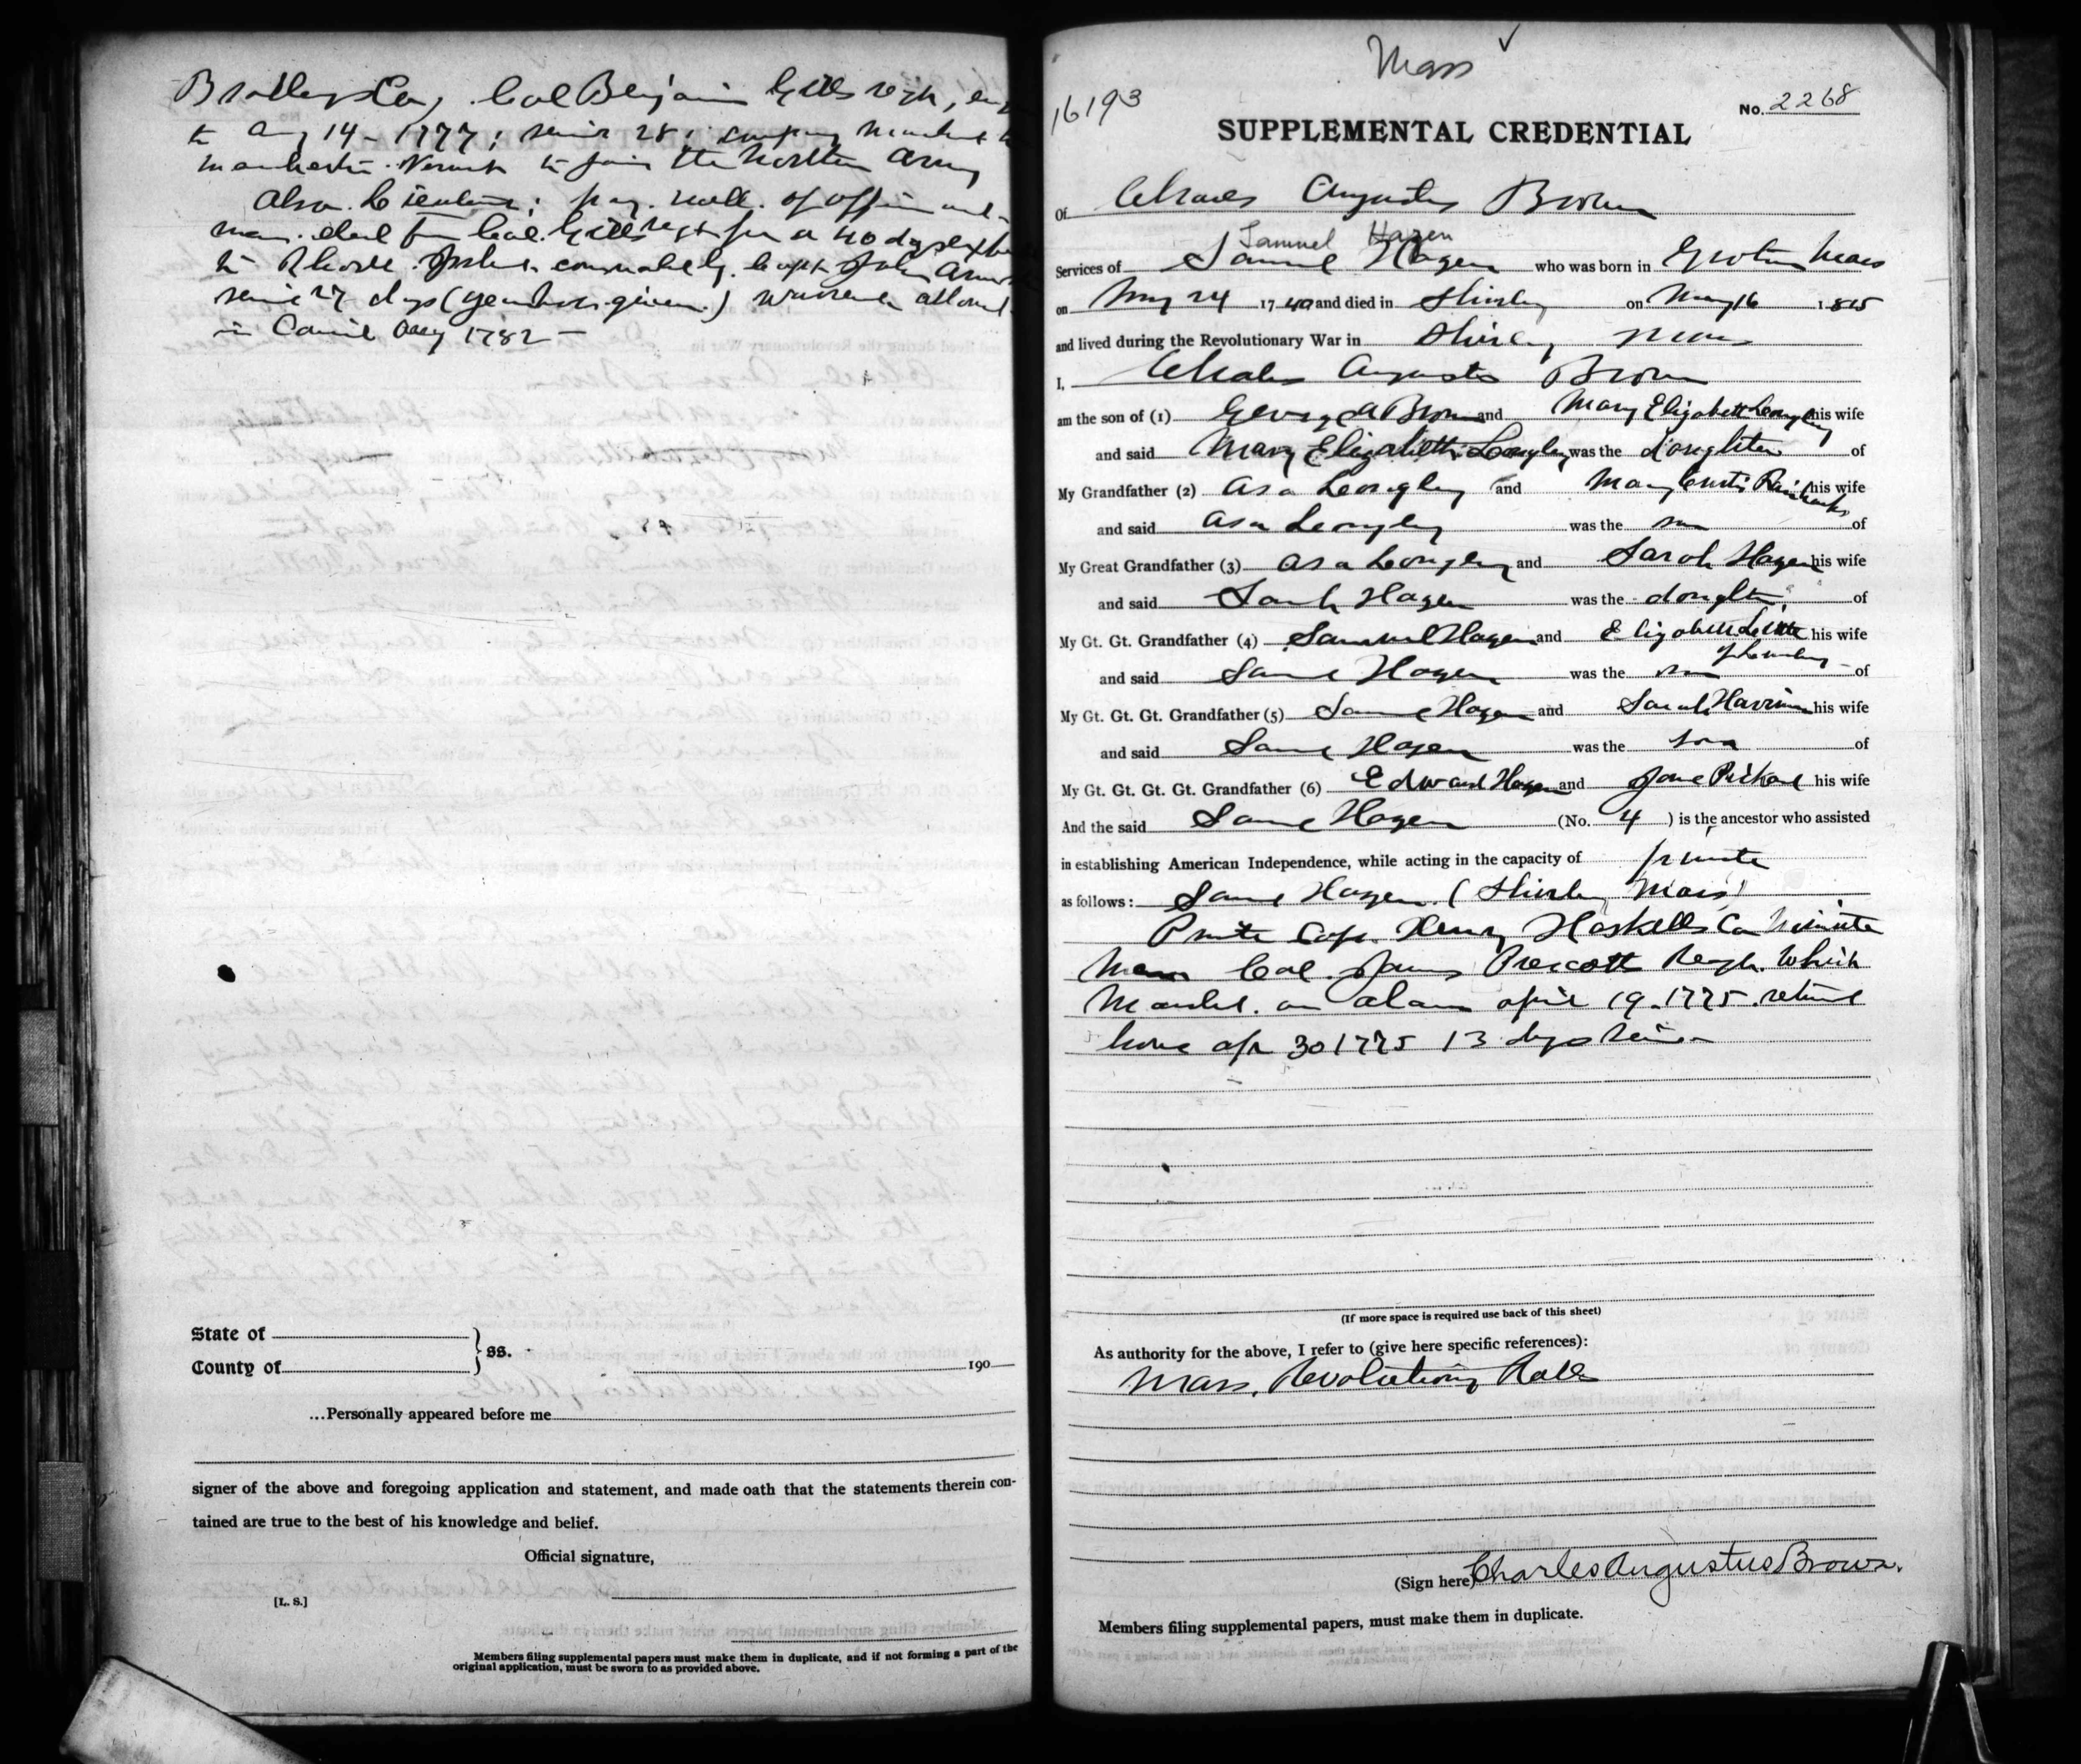 Col Benjamin Gills regt,
to Aug 14 - 1777; service 28; company marched to
Manchester Vermont to join the Northern Army
Also Lieutenant; pay roll of officers and
men. detd from Col. Gills regt for a 40 days
to Rhode Island commanded by Capt John
service 27 days (year not given.) warrant allowed
in Council 1782 -
State of
County of
ss.
190
...Personally appeared before me
signer of the above and foregoing application and statement, and made oath that the statements therein con-
tained are true to the best of his knowledge and belief.
Official signature,
[L. S.]
Members filing supplemental papers must make them in duplicate, and if not forming a part of the
original application, must be sworn to as provided above.
Mass ✓
16193
No. 2268
SUPPLEMENTAL CREDENTIAL
Of Charles Augustus Brown
Samuel Hazen
Services of Samuel Hazen who was born in Groton Mass
on May 24 1740 and died in Shirley on May 16 1815
and lived during the Revolutionary War in Shirley Mass
I, Charles Augustus Brown
am the son of (1) George A Brown and Mary Elizabeth Longley his wife
and said Mary Elizabeth Longley was the daughter of
My Grandfather (2) Asa Longley and Mary Curtis Fairbanks his wife
and said Asa Longley was the son of
My Great Grandfather (3) Asa Longley and Sarah Hazen his wife
and said Sarah Hazen was the daughter of
My Gt. Gt. Grandfather (4) Samuel Hazen and Elizabeth Little his wife
and said Saml Hazen was the son of
My Gt. Gt. Gt. Grandfather (5) Saml Hazen and Sarah Harriman his wife
and said Saml Hazen was the son of
My Gt. Gt. Gt. Gt. Grandfather (6) Edward Hazen and Jane Pickard his wife
And the said Saml Hazen (No. 4 ) is the ancestor who assisted
in establishing American Independence, while acting in the capacity of private
as follows: Saml Hazen. (Shirley Mass)
Private Capt. Henry Haskells Co Minute
Men Col. James Prescott Regt. which
Marched on alarm April 19. 1775. retired
home Apr 30 1775 13 days service
(If more space is required use back of this sheet)
As authority for the above, I refer to (give here specific references):
Mass. Revolutionary Rolls
(Sign here) Charles Augustus Brown.
Members filing supplemental papers, must make them in duplicate.